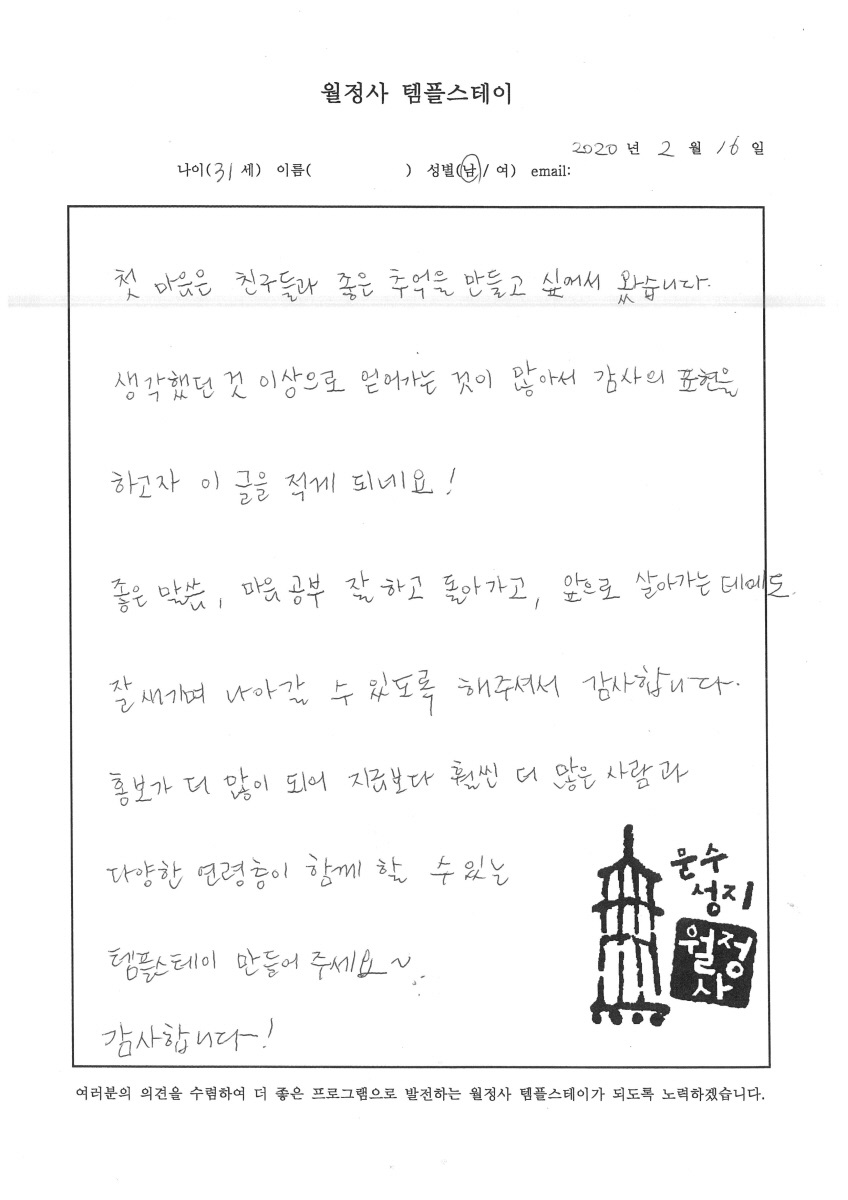 월정사 템플스테이
2020 년 2 월 16 일
나이(31 세) 이름( ) 성별(남/ 여) email:
첫 마음은 친구들과 좋은 추억을 만들고 싶어서 왔습니다.
생각했던 것 이상으로 얻어가는 것이 많아서 감사의 표현을
하고자 이 글을 적게 되네요!
좋은 말씀, 마음 공부 잘 하고 돌아가고, 앞으로 살아가는 데에도
잘 새기며 나아갈 수 있도록 해주셔서 감사합니다.
홍보가 더 많이 되어 지금보다 훨씬 더 많은 사람과
다양한 연령층이 함께 할 수 있는
템플스테이 만들어 주세요~
감사합니다~!
문수
성지
월정
사
여러분의 의견을 수렴하여 더 좋은 프로그램으로 발전하는 월정사 템플스테이가 되도록 노력하겠습니다.